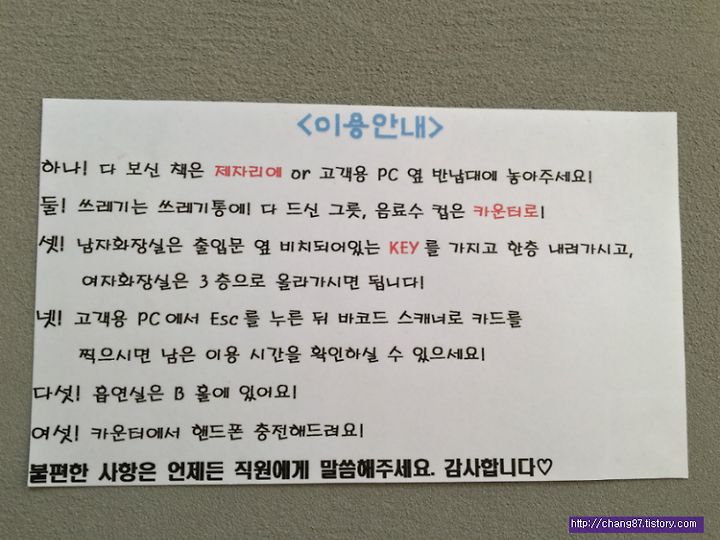 <이용안내>
하나! 다 보신 책은 제자리에 or 고객용 PC 옆 반납대에 놓아주세요!
둘! 쓰레기는 쓰레기통에! 다 드신 그릇, 음료수 컵은 카운터로!
셋! 남자화장실은 출입문 옆 비치되어있는 KEY를 가지고 한층 내려가시고,
여자화장실은 3층으로 올라가시면 됩니다!
넷! 고객용 PC에서 Esc를 누른 뒤 바코드 스캐너로 카드를
찍으시면 남은 이용 시간을 확인하실 수 있으세요!
다섯! 흡연실은 B 홀에 있어요!
여섯! 카운터에서 핸드폰 충전해드려요!
불편한 사항은 언제든 직원에게 말씀해주세요. 감사합니다♡
http://chang87.tistory.com